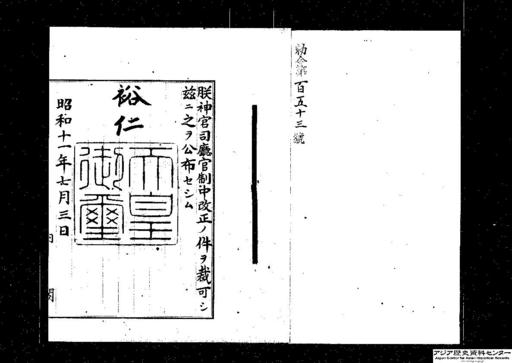 勅令第百五十三號
朕神官司廳官制中改正ノ件ヲ裁可シ
玆ニ之ヲ公布セシム
裕仁
天皇御璽
昭和十一年七月三日
アジア歴史資料センター
Japan Center for Asian Historical Records